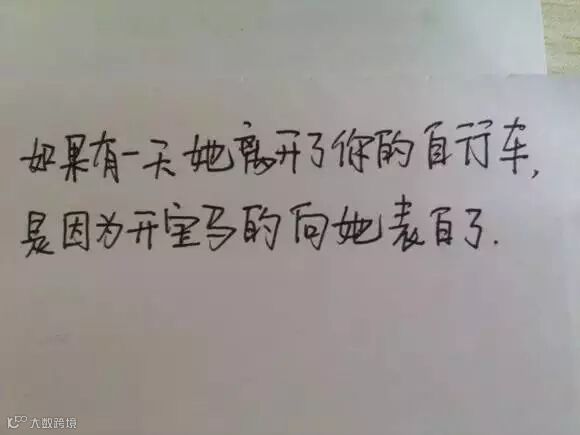 如果有一天她离开了你的自行车,
是因为开宝马的向她表白了.
大数跨境